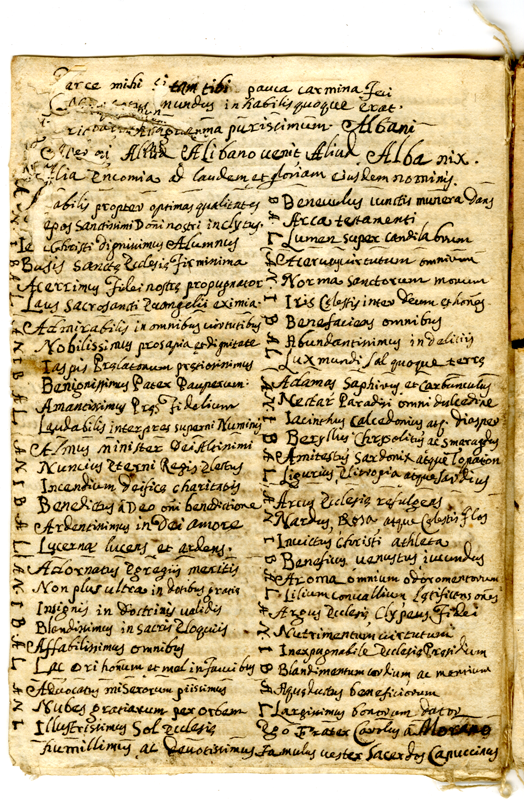 Parce mihi si tam tibi pauca carmina feci
mundus inhabilis quoque erat.
Anagramma purissimum Albani
Alibano venit Aliud Alba nix.
Alia Encomia ad laudem et gloriam eiusdem nominis.
abilis propter optimas qualitates
epos Sanctissimi Domi nostri inclytus.
Iesu Christi dignissimus Alumnus
Basis Sanctę Ecclesię firmissima
Acerrimus fidei nostrę propugnator
Laus Sacrosancti Evangelii eximia.
Admirabilis in omnibus virtutibus
Nobilissimus prosapia et dignitate
Iaspis Pręlatorum pretiosissimus
Benignissimus Pater Pauperum.
Amantissimus fidelium
Laudabilis interpres superni Numinis
Almus minister Dei Altissimi
Nuncius Ęterni Regis Electus
Incendium deificę charitatis
Benedictus a Deo omni benedictione
Ardentissimus in Dei amore
Lucerna lucens et ardens.
Adornatus Egregiis meritis
Non plus ultra in dotibus gratis
Insignis in doctrinis validis
Blandissimus in sacris Eloquiis
Affabilissimus omnibus
Lac ori bonum et mel in faucibus
Advocatus miserorum piissimus
Nubes gratiarum per orbem
Illustrissimus Sol Ecclesię
Benevolus cunctis munera dans
Arca testamenti
Lumen super candilabrum
Acervus virtutum omnium
Norma sanctorum morum
Iris Cęlestis inter Deum et hoēs.
Beneficiens omnibus
Abundantissimus in delitiis
Lux mundi sal quoque terrę
Adamas Saphirus, et Carbunculus
Nectar Paradisi omni dulcedine
Iacinthus Calcedonius atq. diasper
Beryllus Chrysolitus ac smaragdus
Amitestus Sardonix atque topation
Ligurius Eliotropia atque sardius
Arcus Ecclesię refulgens
Nardus, Rosa atque Cęlestis flos
Invictus Christi athleta
Benefius venustus iucundus
Aroma omnium odoramentorum
Lilium Convallium Lętificans ōnes
Argus Ecclesię Clypeus fidei
Nutrimentum virtutum
Inexpugnabile Ecclesię Pręsidium
Blandimentum cordium ac mentium
Aquęductus beneficiorum
Largissimus bonorum dator
Ego Frater Carolus a Morano
humillimus ac devotissimus famulus vester sacerdos Capuccinus